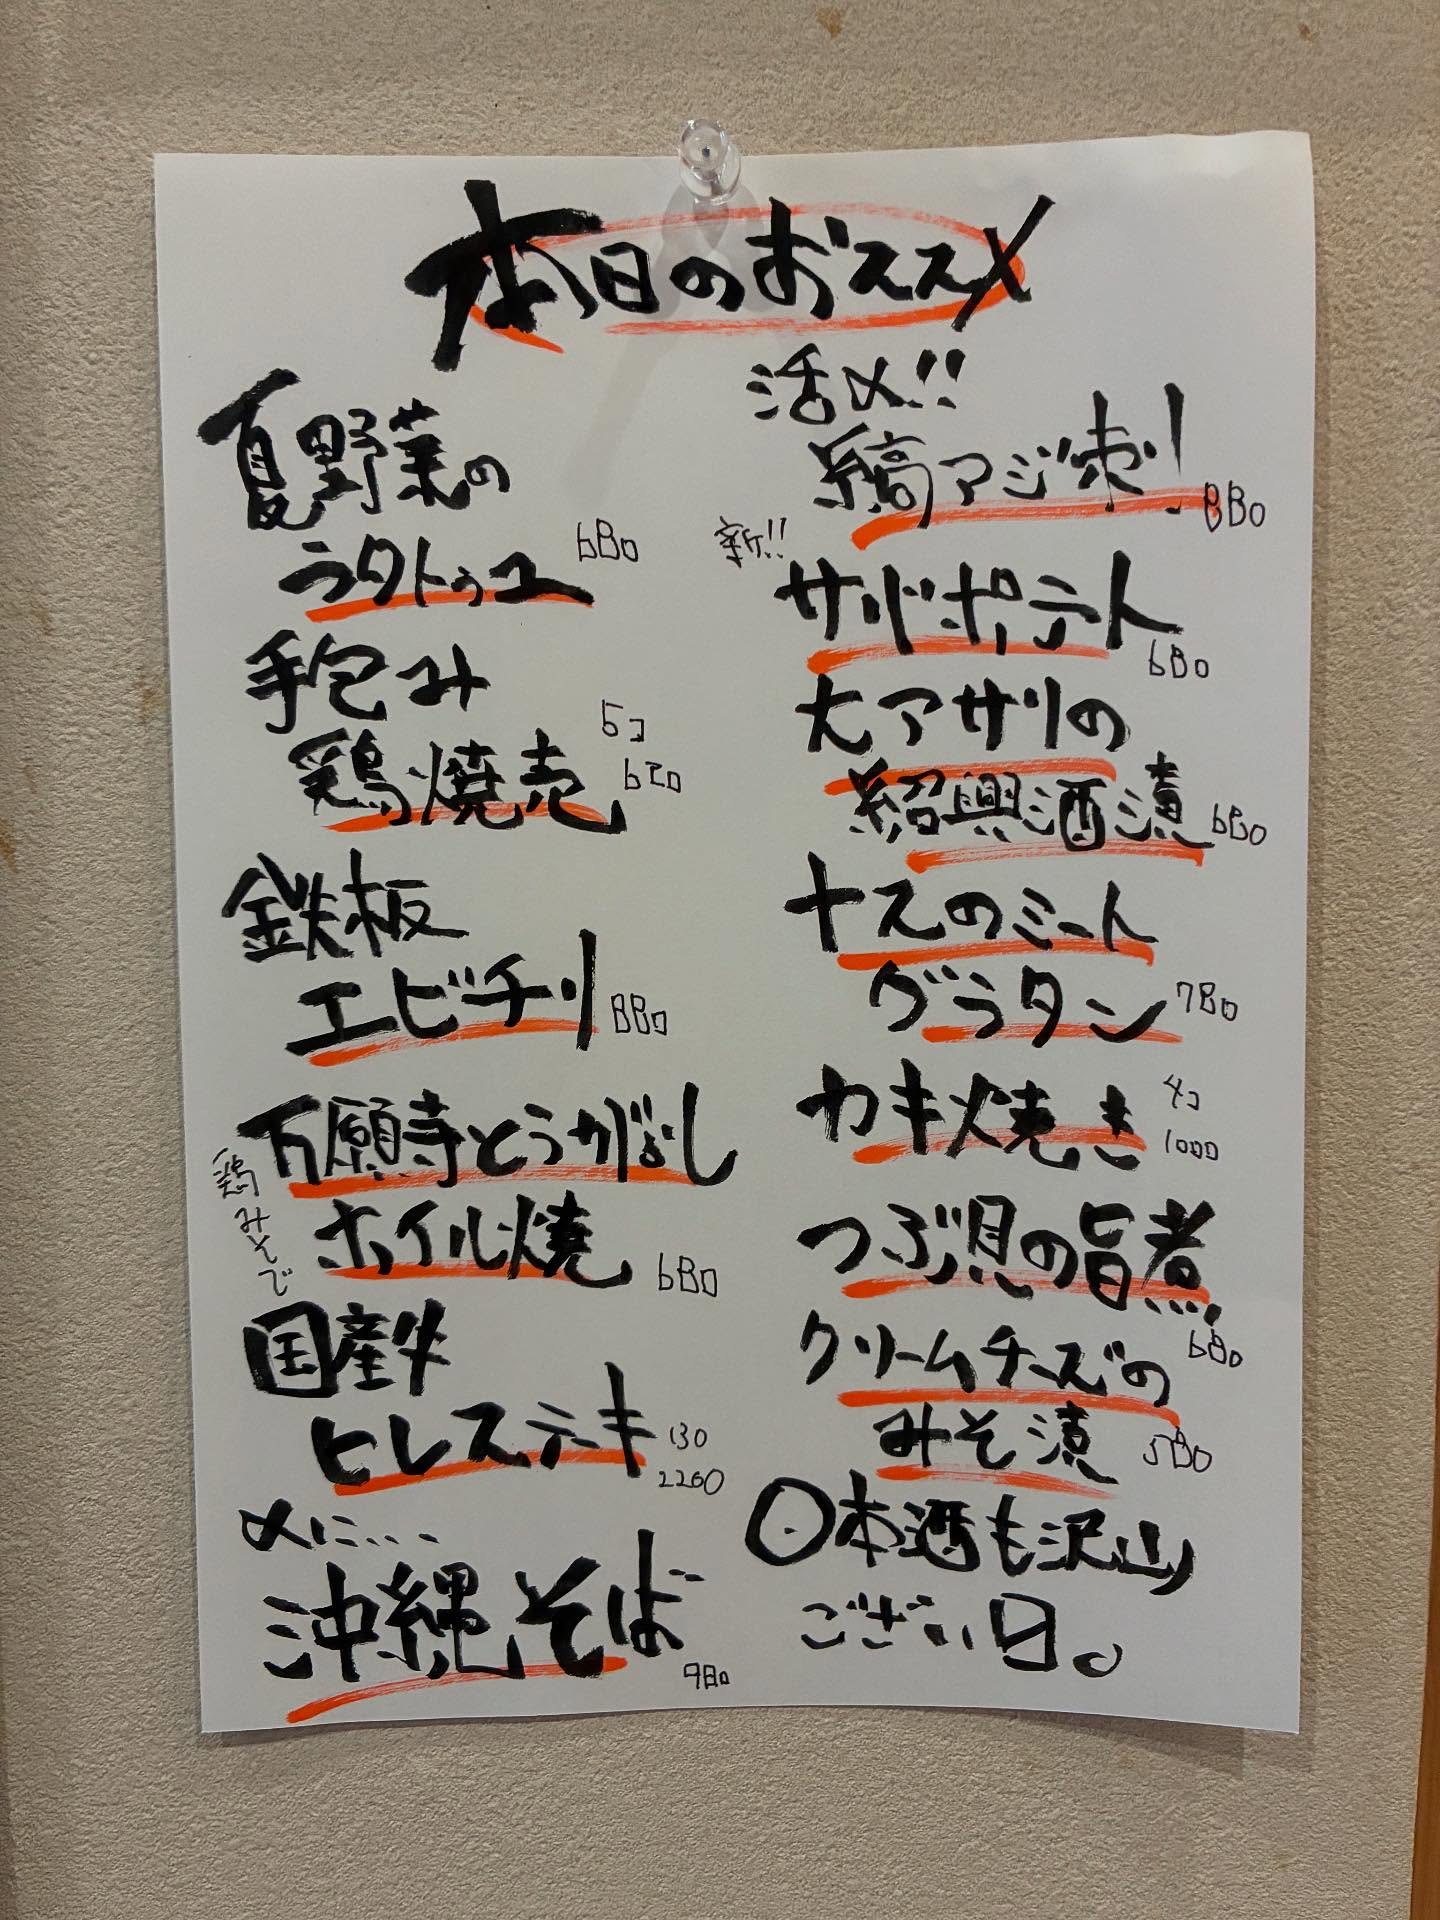 本日のおススメ
活〆!!
縞アジ刺
880
新!!
サルドポテト
680
大アサリの
紹興酒漬
680
ナスのミート
グラタン
780
カキ焼き
4コ
1000
つぶ貝の旨煮
680
クリームチーズの
みそ漬
580
〇本酒も沢山
ござい〼。
夏野菜の
ラタトゥユ
680
手包み
5コ
鶏焼売
620
鉄板
エビチリ
880
万願寺とうがらし
鶏みそで
ホイル焼
680
国産牛
ヒレステーキ
130
2200
〆に…
沖縄そば
980